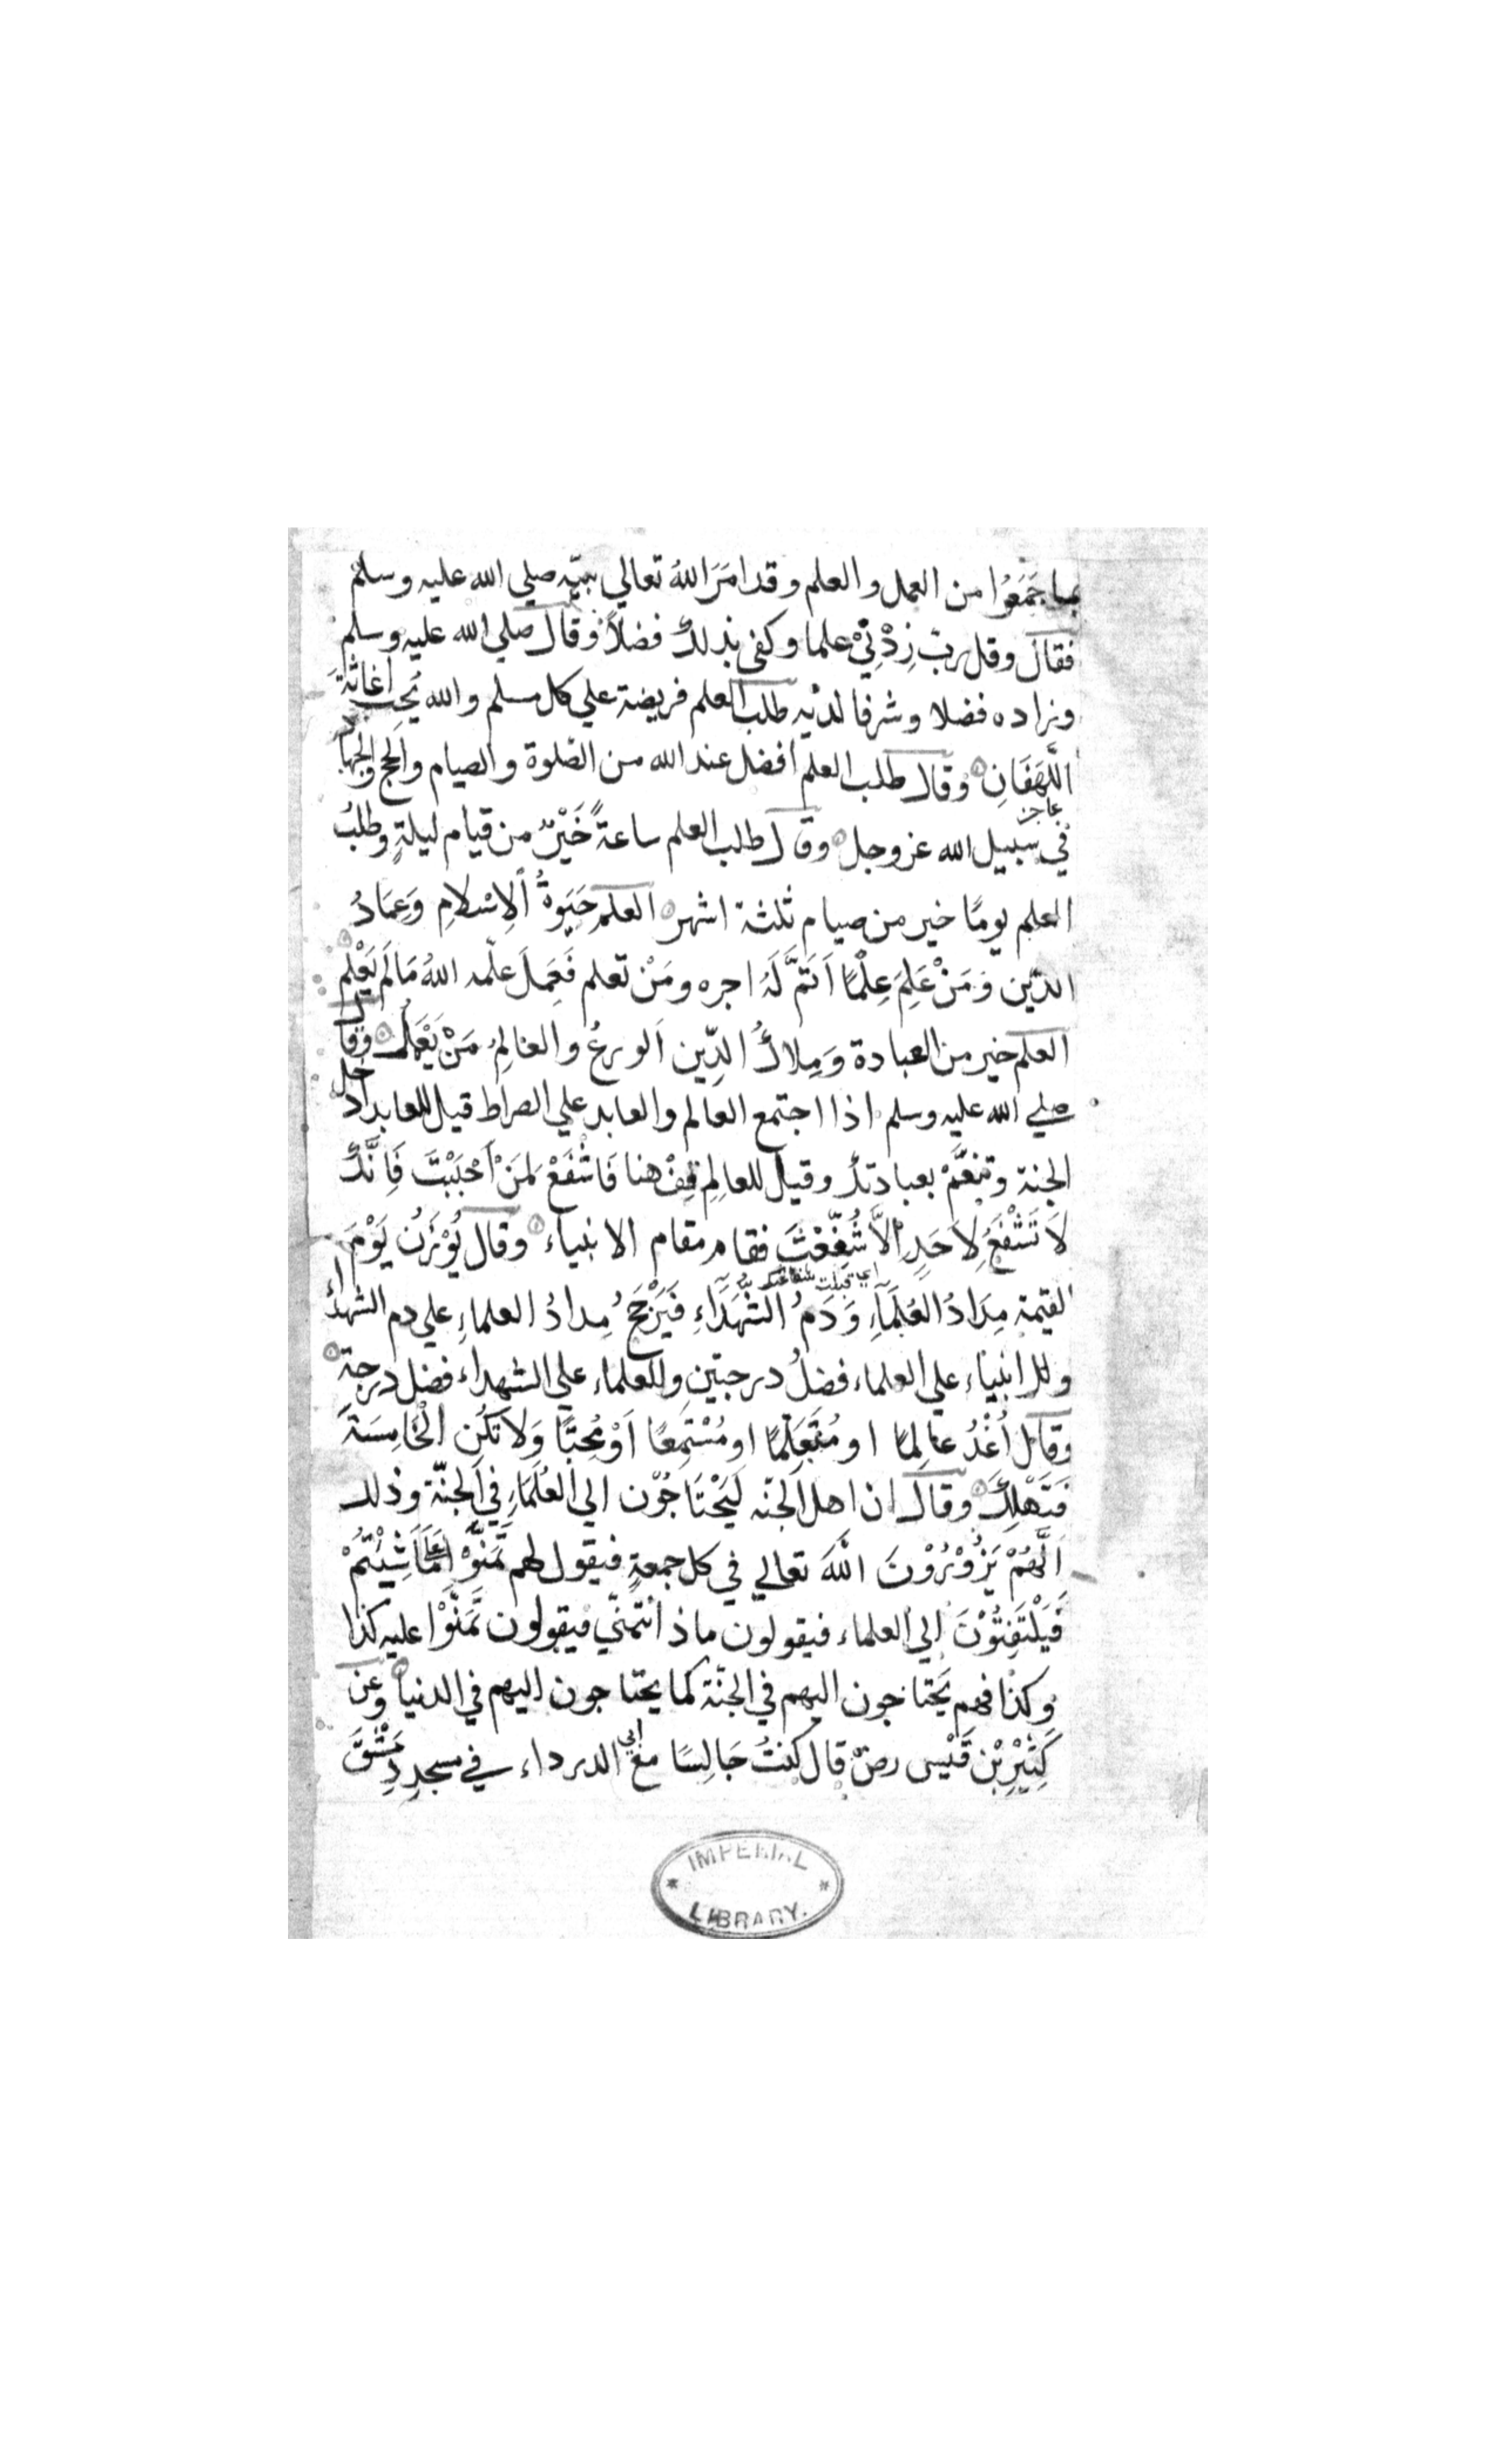 بما جَمَعُوْا من العمل والعلم وقد امَرَ اللهُ تعالي نبيّه صلي الله عليه وسلم
فقال وقل رب زِدْنِيْ علما وكفى بذلك فضلاً وقال صلي الله عليه وسلم
وزاده فضلا وشرفا لديه طلب العلم فريضة علي كل مسلم والله يُحِب اغاثةَ
اللَّهَفَانِ وقال طلب العلم افضل عند الله من الصّلوة والصيام والحج والجهاد
عاجز
في سبيل الله عز وجل وقال طلب العلم ساعةً خَيْرٌ من قيام ليلةٍ وطلبُ
العلم يومًا خير من صيام ثلثة اشهر العلم حَيَوةُ اَلاِسْلامِ وَعِمَادُ
الدّين وَمَنْ عَلِمَ عِلْمًا اَتَمَّ لَهُ اجره ومَنْ تعلم فَعَمِلَ علّمه اللهُ مَالَم يَعْلم
العلم خير من العبادة وَمِلاكُ الدِّين اَلورعُ والعالِمُ مَنْ يَعْمَلُ وقال
صلي الله عليه وسلم اذا اجتمع العالم والعابد علي الصراط قيل للعابد ادخل
الجنة وتنعَّمْ بعبادتك وقيل للعالِمِ قِفْ هنا فَاشْفَعْ لِمَنْ اَحْبَبْتَ فَاِنَّكَ
لاَ تَشْفَعُ لِاَحَدٍ اِلاَّ شُفِّعْتَ فقام مقام الانبياء وقال يُوْزَنُ يَوْمَ
اي قبلت شفاعتك
القيمة مِدَادُ العُلَمَاءِ وَدَمُ الشُهَدَاءِ فَيَرْجَحُ مِدادُ العلماءِ علي دم الشهداء
وللانبياء علي العلماء فضلُ درجتين وللعلماء علي الشهداء فضل درجة
وقال اُغْدُ عالِمًا او مُتَعَلِّمًا او مُسْتَمِعًا اَوْ مُحِبًّا وَلاَ تَكُنِ الْخَامِسَةَ
فَتَهْلِكَ وقال ان اهل الجنّه لَيَحْتَاجُوْن الي العُلَمَاءِ في الجنّة وذلك
اَنَّهُمْ يَزُوْرُوْنَ اللهَ تعالي في كل جمعةٍ فيقول لهم تَمَنَّوْا عَلَيَّ مَا شِئْتُمْ
فَيَلْتَفِتُوْنَ الي العلماء فيقولون ماذا نتمنّي فيقولون تَمَنَّوْا عليه كذا
وكذا فهم يَحتاجون اليهم في الجنّة كما يحتاجون اليهم في الدنيا وعن
كَثِيْرِ بْنِ قَيْس رضـ قال كنتُ جَالِسًا مع ابي الدرداء في مسجد دِمَشْقَ
IMPERIAL
LIBRARY.